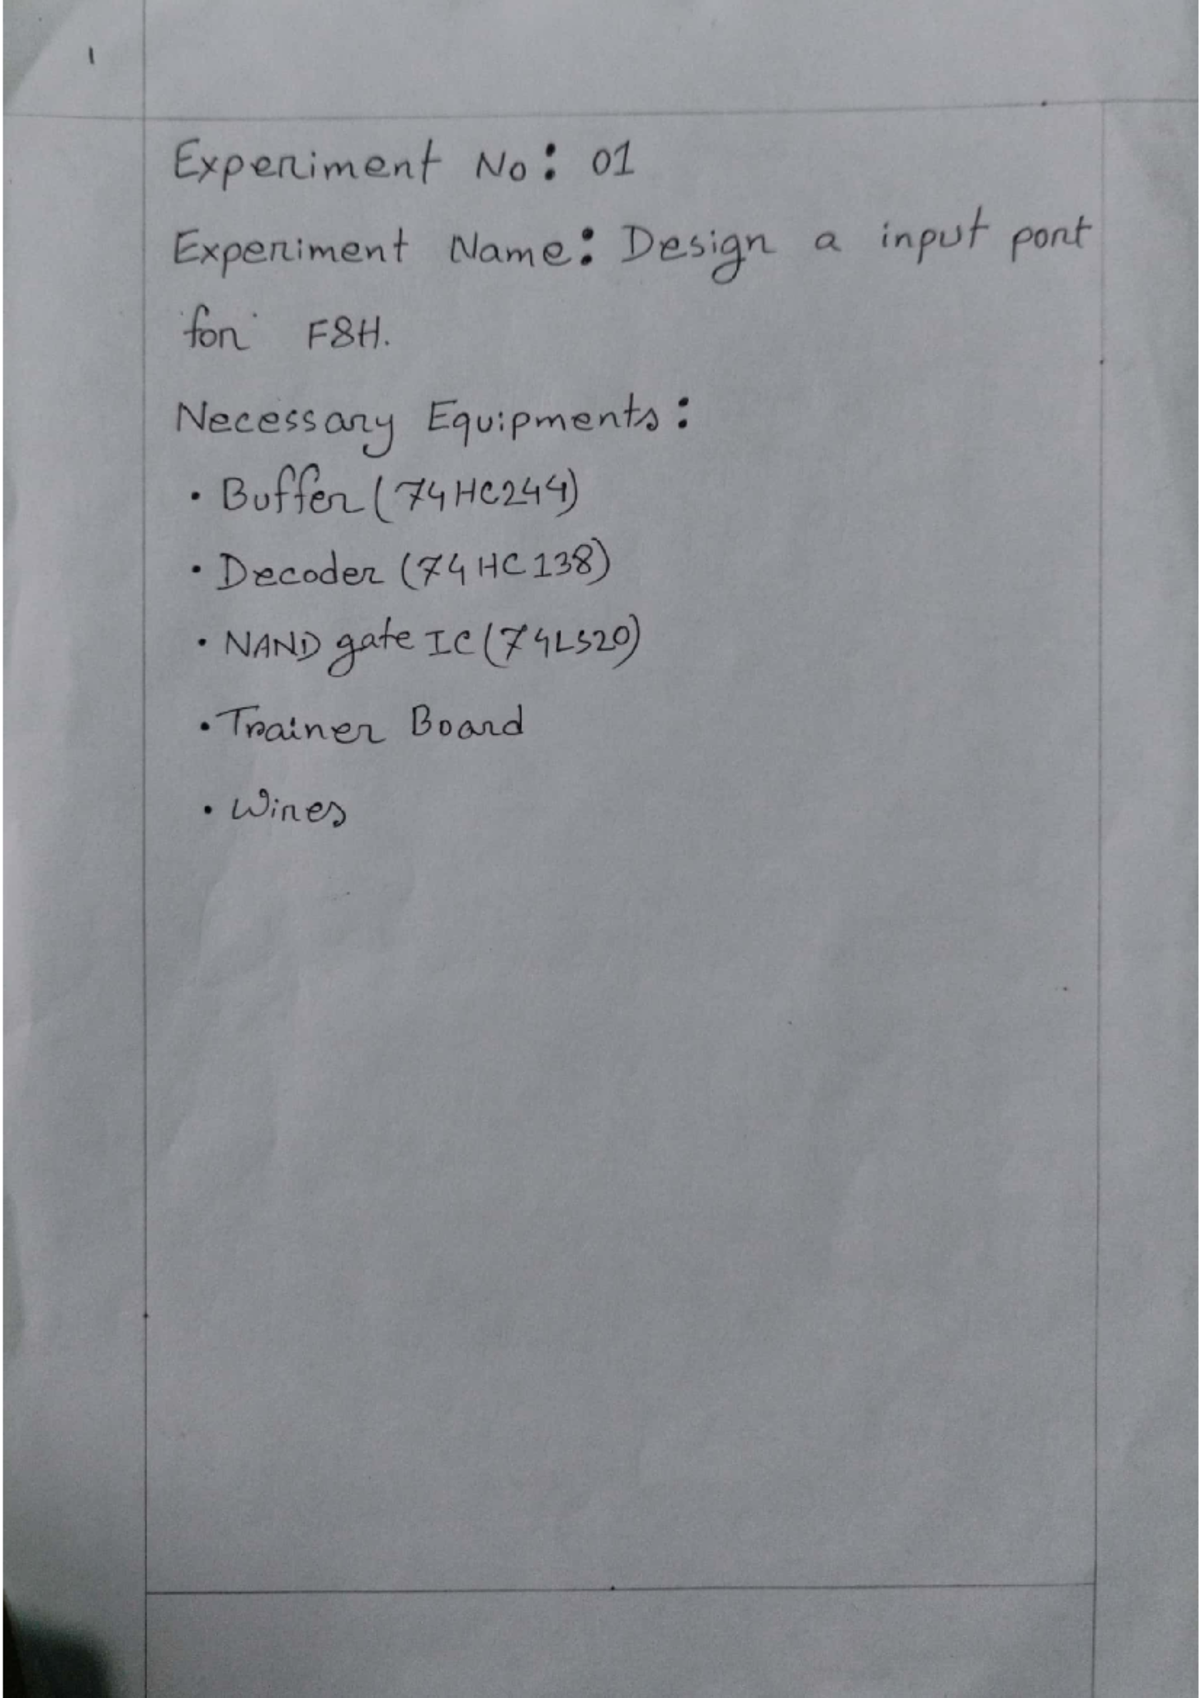 1
Experiment No: 01
Experiment Name: Design a input port
for F8H.
Necessary Equipments:
• Buffer (74HC244)
• Decoder (74HC138)
• NAND gate IC (74LS20)
• Trainer Board
• Wires